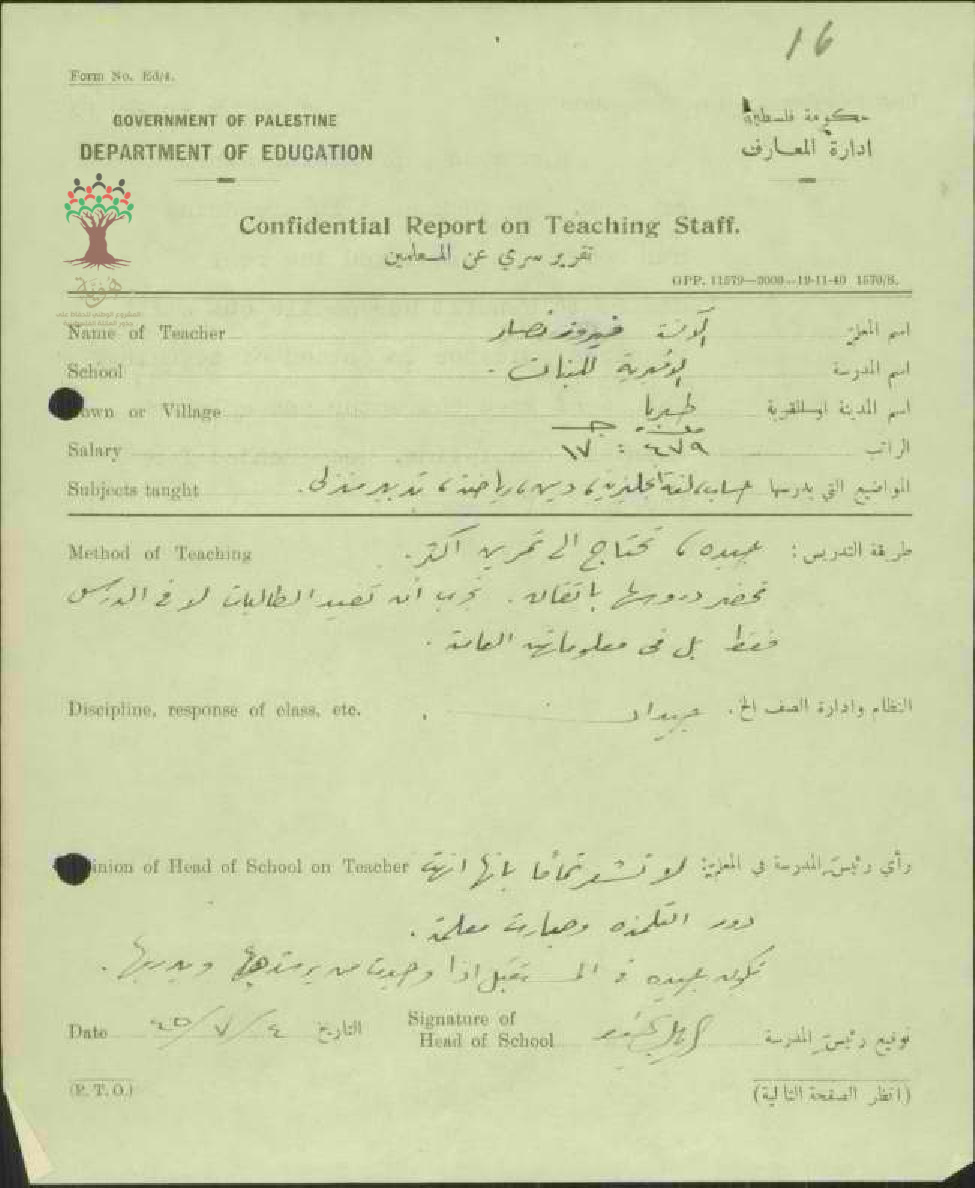 16
Form No. Ed/4.
GOVERNMENT OF PALESTINE
DEPARTMENT OF EDUCATION
حكومة فلسطين
ادارة المعارف
Confidential Report on Teaching Staff.
تقرير سري عن المعلمين
GPP. 11579—3000—19-11-40 1570/S.
Name of Teacher الآنسة فيروز نصار اسم المعلم
School الاميرية للبنات . اسم المدرسة
Town or Village طبريا اسم المدينة او القرية
Salary ٤٧٩ : ١٧ الراتب
Subjects taught حساب، لغة انجليزية، دين، رياضة، تدبير منزلي . المواضيع التي يدرسها
Method of Teaching طريقة التدريس : جيدة، تحتاج الى تمرين اكثر .
تحضر دروسها باتقان . تجرب ان تفيد الطالبات لا في الدرس
فقط بل في معلوماتهن العامة .
Discipline, response of class, etc. النظام وادارة الصف الخ . جيدان .
Opinion of Head of School on Teacher رأي رئيس المدرسة في المعلم : لا تشعر تماما بانها انهت
دور التلمذة وصارت معلمة .
تكون جيدة في المستقبل اذا وجدت من يرشدها ويدربها .
Date ٤ / ٧ / ٤٥ التاريخ
Signature of
Head of School توقيع رئيس المدرسة
(P. T. O.) (انظر الصفحة التالية)